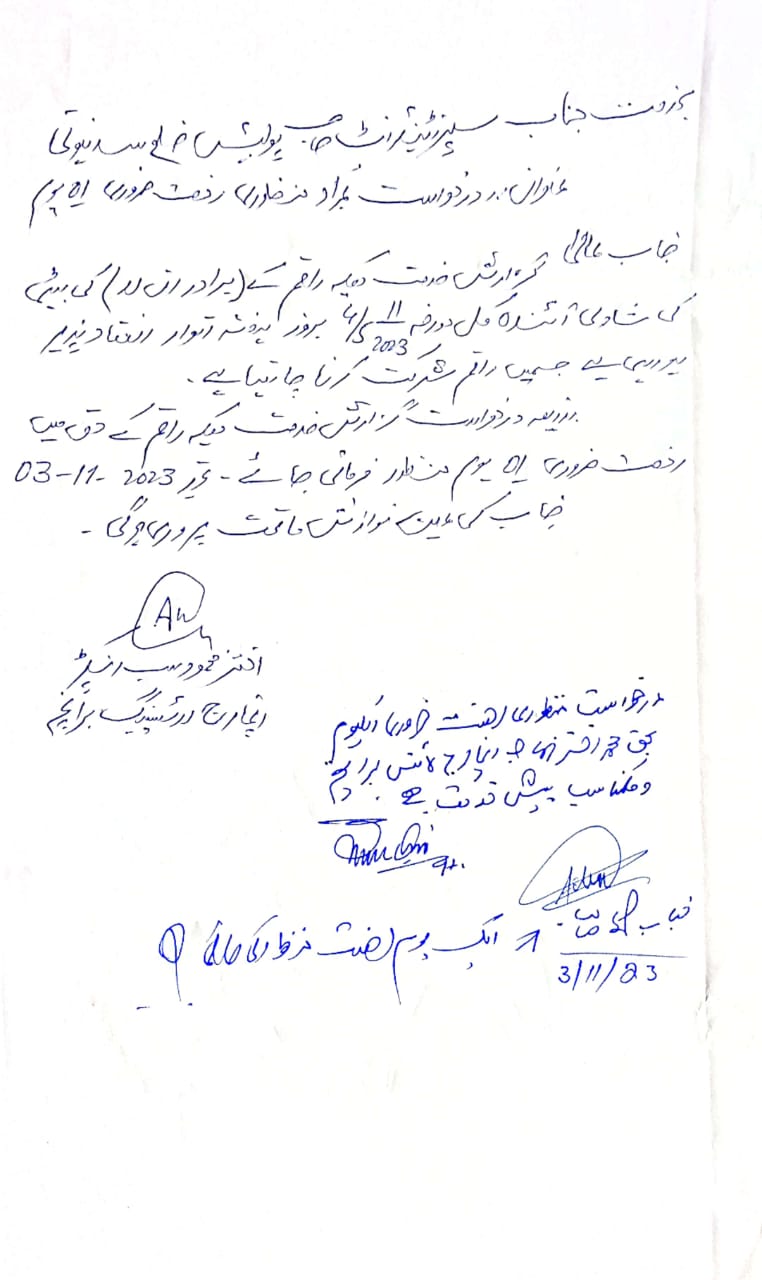 بخدمت جناب سپرنٹنڈنٹ صاحب پولیس ضلع سدہنوتی
عنوان:۔ درخواست بمراد منظوری رخصت ضروری ایک یوم
جناب عالی! گزارش خدمت ہیکہ راقم کے (برادر ان لاء) کی بیٹی
کی شادی آئندہ کل مورخہ 4/5 11 2023 بروز ہفتہ اتوار انعقاد پذیر
ہو رہی ہے جسمیں راقم شرکت کرنا چاہتا ہے۔
بذریعہ درخواست گزارش خدمت ہیکہ راقم کے حق میں
رخصت ضروری ایک یوم منظور فرمائی جائے۔ تحریر 2023 -11-03
جناب کی عین نوازش ماتحت پروری ہوگی۔
اختر محمود سب انسپکٹر
انچارج برانچ
درخواست منظوری رخصت ضروری ایکیوم
بحق اختر صاحب انچارج برانچ
مناسب پیش خدمت ہے
جناب صاحب
ایک یوم رخصت منظور کی جاتی
3/11/23